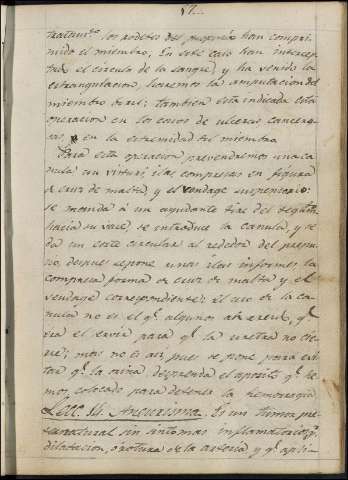 17..
los rodetes del prepucio han compri-
mido el miembro; En este caso han intercep-
tado el circulo de la sangre, y ha venido la
estrangulacion, haremos la amputacion del
miembro; tambien esta indicada esta
operacion en los casos de ulceras cancero-
sas en la extremidad del miembro
Para esta operacion prevendremos una ca-
nula, un visturi, las compresas en figura
de cruz de malta, y el vendage suspensorio:
se manda á un ayudante tire del
hacia su, se introduce la canula, y se
da un corte circular al rededor del prepu-
cio, despues se pone unas ilas informes, la
compresa forma de cruz de malta y el
vendage correspondiente; El uso de la ca-
nula no es el q.e algunos creen, q.e
era el para q.e la uretra no cie-
rre; mas no es asi pues se pone para evi-
tar q.e la orina desprenda el aposito q.e he-
mos colocado para detener la hemorragia
Lecc. 14. Aneurisma. Es un tumor pre-
ternatural sin sintomas inflamatorios, p.r
dilatacion, ó rotura de la arteria y q.e